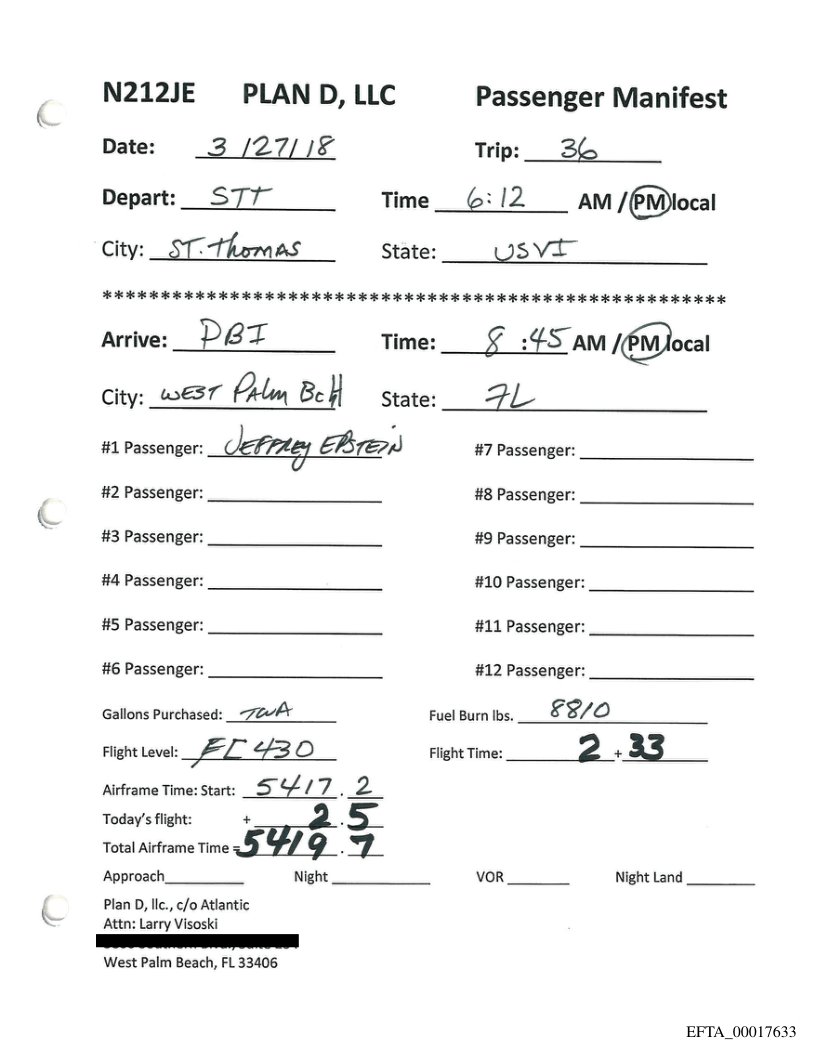 N212JE PLAN D, LLC Passenger Manifest
Date: 3/27/18 Trip: 36
Depart: STT Time 6:12 AM / PM local
City: ST. Thomas State: USVI
*****************************************************
Arrive: PBI Time: 8:45 AM / PM local
City: WEST PAlm BcH State: FL
#1 Passenger: JEFFREY EPSTEIN #7 Passenger:
#2 Passenger: #8 Passenger:
#3 Passenger: #9 Passenger:
#4 Passenger: #10 Passenger:
#5 Passenger: #11 Passenger:
#6 Passenger: #12 Passenger:
Gallons Purchased: TWA Fuel Burn lbs. 8810
Flight Level: FL 430 Flight Time: 2 + 33
Airframe Time: Start: 5417.2
Today's flight: + 2.5
Total Airframe Time = 5419.7
Approach Night VOR Night Land
Plan D, llc., c/o Atlantic
Attn: Larry Visoski
West Palm Beach, FL 33406
EFTA_00017633